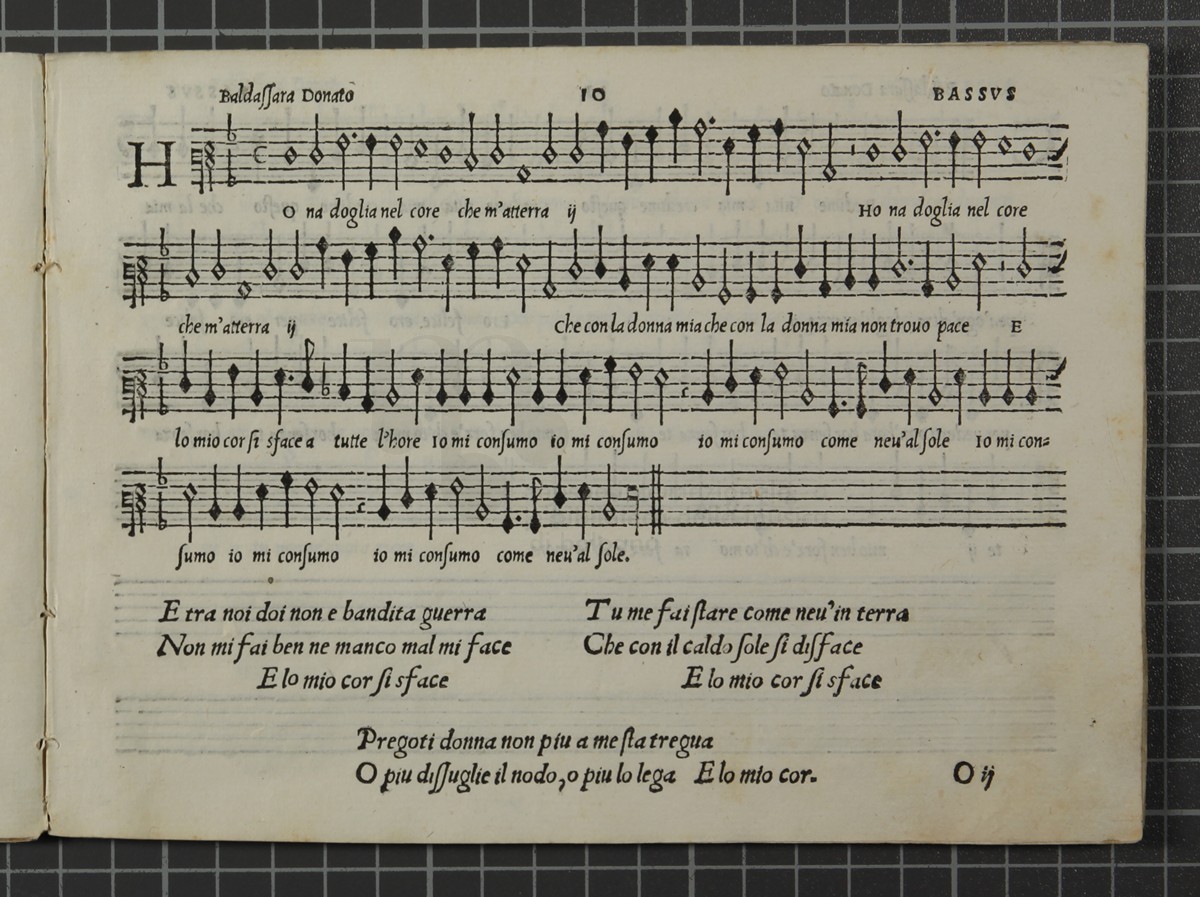 Baldaſſara Donato 10 BASSVS
HO na doglia nel core che m'atterra ij Ho na doglia nel core
che m'atterra ij Che con la donna mia che con la donna mia non trouo pace E
lo mio cor ſi sface a tutte l'hore Io mi conſumo io mi conſumo io mi conſumo come neu'al ſole Io mi con=
ſumo io mi conſumo io mi conſumo come neu'al ſole.
E tra noi doi non e bandita guerra
Non mi fai ben ne manco mal mi face
E lo mio cor ſi sface
Tu me fai ſtare come neu'in terra
Che con il caldo ſole ſi diſface
E lo mio cor ſi sface
Pregoti donna non piu a me ſta tregua
O piu diſſuglie il nodo, o piu lo lega E lo mio cor. O ij